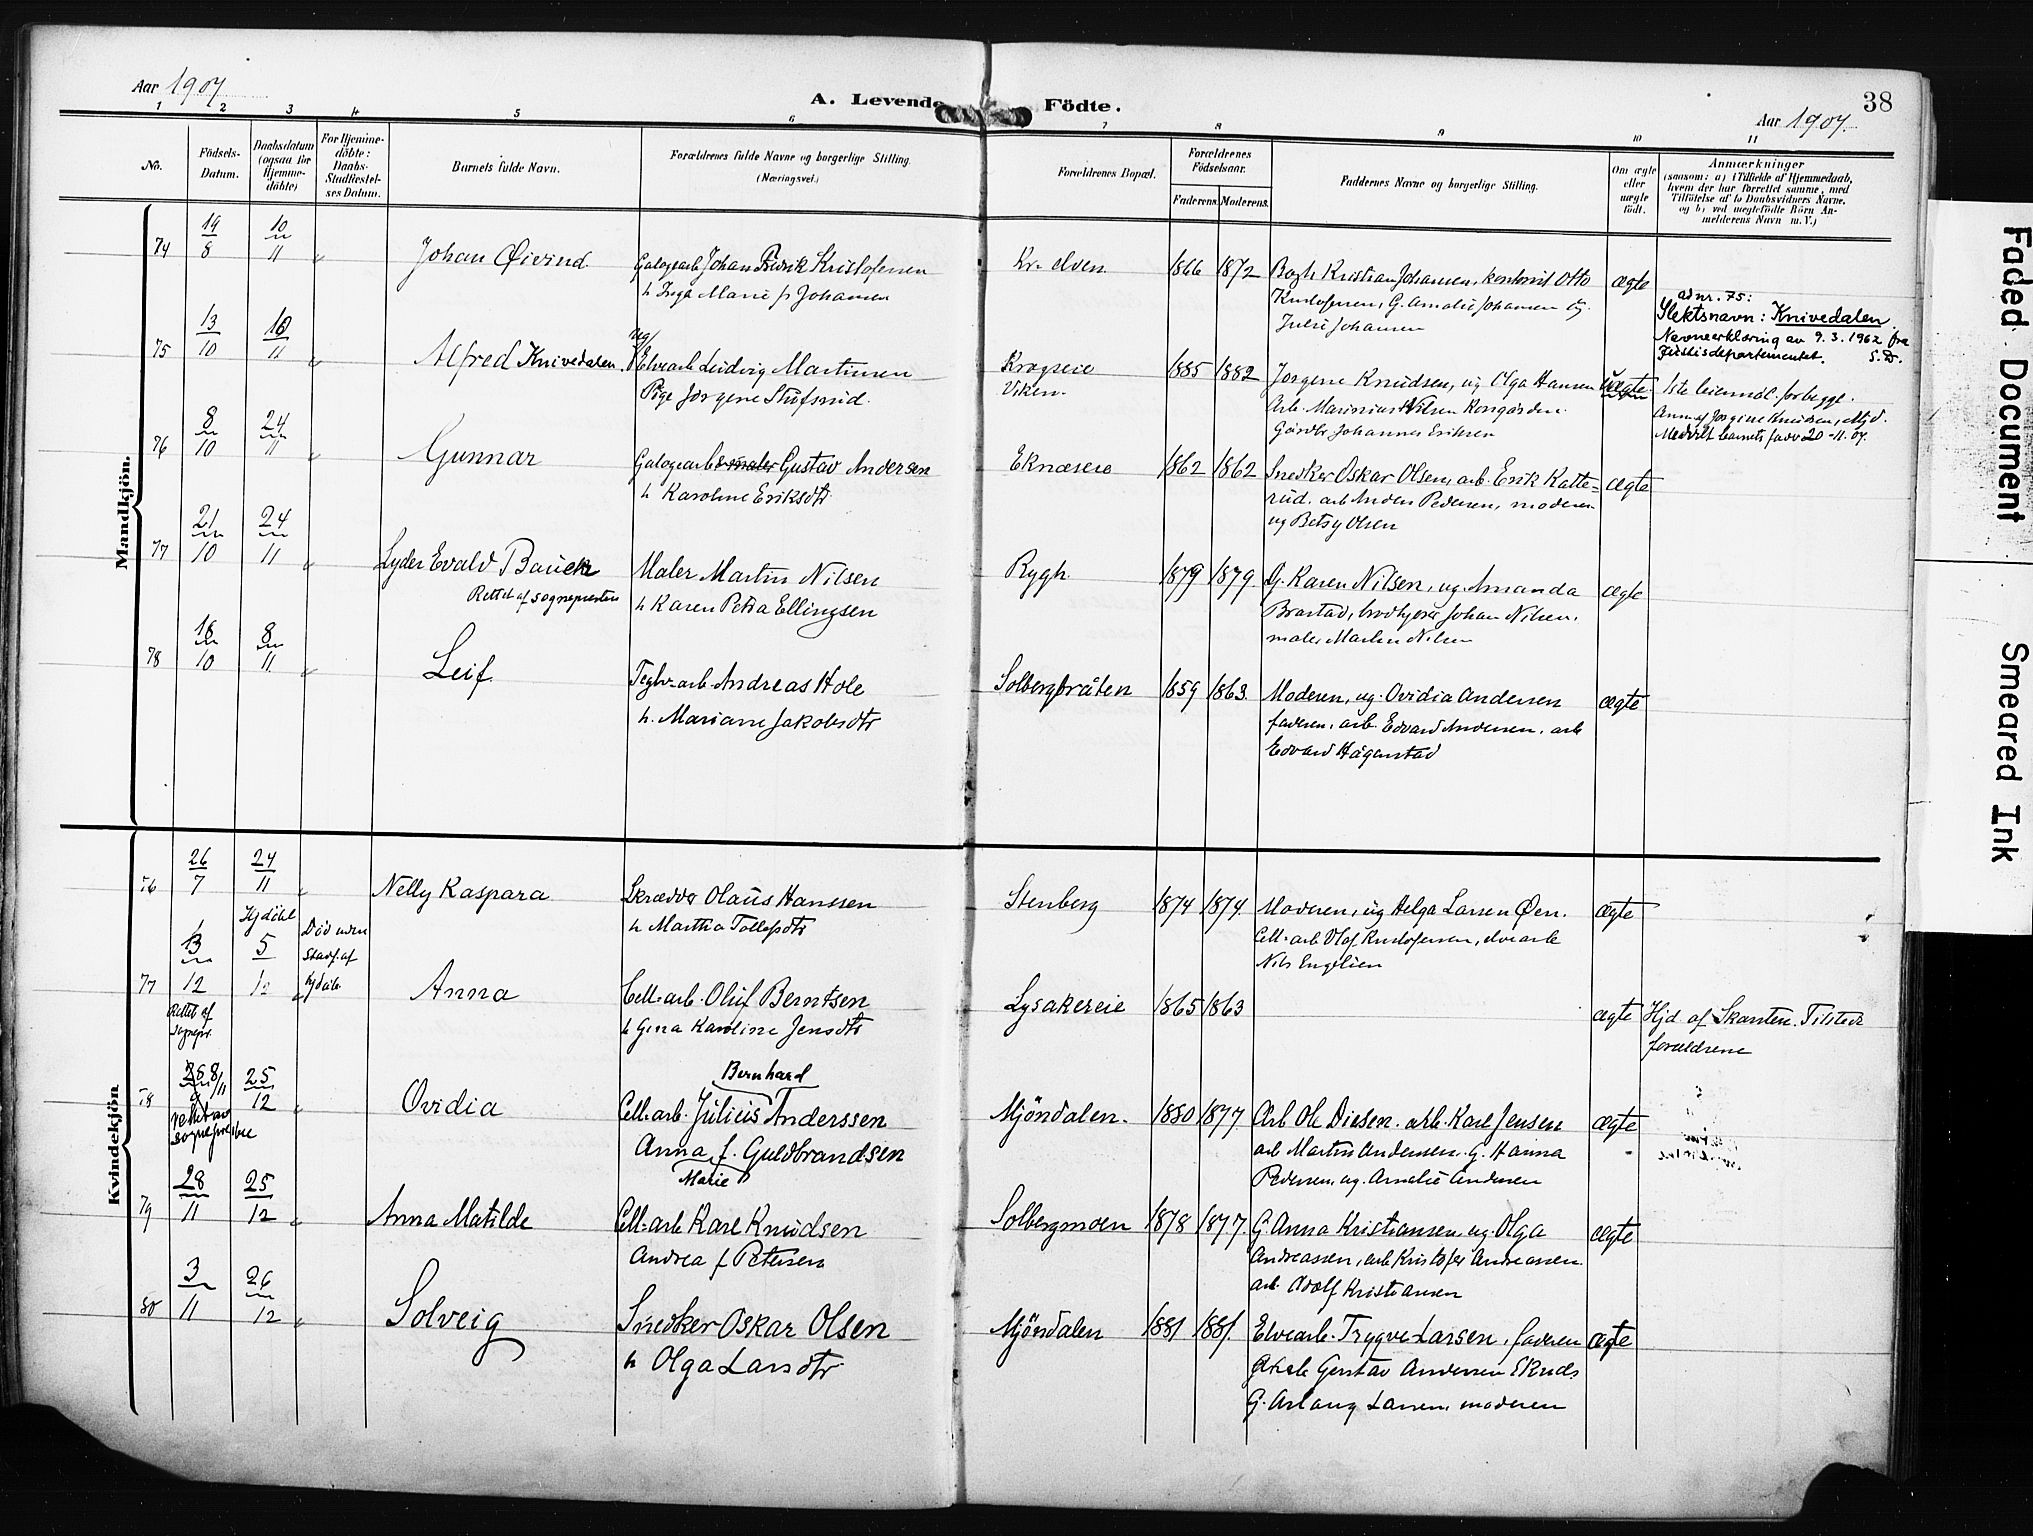 Aar 1907
A. Levende Födte.
Aar 1907.
38
1 2 3 4 5 6 7 8 9 10 11
No.
Födsels-
Datum.
Daabsdatum
(ogsaa för
Hjemme-
döbte)
For Hjemme-
döbte:
Daabs-
Stadfæstel-
ses Datum.
Barnets fulde Navn.
Forældrenes fulde Navne og borgerlige Stilling.
(Næringsvei.)
Forældrenes Bopæl.
Forældrenes
Födselsaar.
Faderens. Moderens.
Faddernes Navne og borgerlige Stilling.
Om ægte
eller
uægte
födt.
Anmærkninger
(saasom: a) i Tilfælde af Hjemmedaab,
hvem der har forrettet samme, med
Tilföielse af to Daabsvidners Navne,
og b) ved uægtefödte Börn An-
melderens Navn m. V.)
Mandkjön.
74
19/8
10/11
Johan Øivind
Galogearb Johan Fredrik Kristofersen
h Inga Marie f Johansen
Kr. elven
1866 1872
Bagh Kristian Johansen, kontorist Otto
Kristofersen, G. Amalie Johansen og
Julie Johansen
ægte
75
13/10
10/11
Alfred Knivedalen.
Ug/
Elvearb Ludvig Martinsen
Pige Jörgine Stufsrud.
Kragseie
Viken.
1885 1882
Jorgine Knudsen, ug Olga Hansen
Arb. Marinius Nilsen Kongsrden.
Gårdbr Johannes Eriksen
Uægte
ad nr. 75:
Slektsnavn: Knivedalen
Navneerklæring av 9.3.1962 fra
Justisdepartementet. S.D.
1ste leiermål for begge.
Anm af Jorgine Knudsen, Mjd.
Meddelt barnets fader 20-11.07.
76
8/10
24/11
Gunnar
Galogearb Gustav Andersen
h Karoline Eriksdtr
Eknæseie
1862 1862
Snedker Oskar Olsen, arb. Erik Katte=
rud. arb Anders Pedersen, moderen
ug Betsy Olsen
ægte
77
21/10
24/11
Lyder Evald Bauck
Rettet af sognepresten
Maler Martin Nilsen
h Karen Petra Ellingsen
Rygh
1879 1879.
G. Karen Nilsen, ug. Amanda
Brastad, Johan Nilsen.
maler Martin Nilsen
ægte
78
18/10
8/11
Leif
Teglv-arb. Andreas Hole
h. Mariane Jakobsdtr
Solbergbråten
1859 1863.
Moderen, ug. Ovidia Andersen
faderen, arb. Edvard Andersen. arb
Edvard Hågenstad
ægte
Kvindekjön
76
26/7
24/11
Nelly Kaspara
Skrædder Olaus Hanssen
h Martha Tollefsdtr
Stenberg
1874 1874.
Moderen, ug Helga Larsen Øen.
Cell-arb Olaf Kristofersen, elvearb
Nils Engelien
ægte
77
3/12
Rettet af
sognepr.
Hjdöbt
5/12
Död uden
Stadf. af
hjdåb.
Anna
Cell-arb. Oluf Berntsen
h Gina Karoline Jensdtr
Lysakereie
1865 1863
ægte
Hjd. af Skansten. Tilstede
forældrene
78
8/11
rettet av
sognepresten
25/12
Ovidia
Bernhard
Cell-arb. Julius Anderssen
Anna f. Guldbrandsen
Marie
Mjöndalen.
1880 1877
Arb Ole Diesen. arb. Karl Jensen
arb Martin Andersen. G. Hanna
Pedersen, ug. Amalie Andersen
ægte
79
28/11
25/12
Anna Matilde
Cell-arb Karl Knudsen
Andrea f Petersen
Solbergmoen
1878 1877.
G Anna Kristiansen ug Olga
Andreassen, arb Kristofer Andreassen
arb. Adolf Kristiansen
ægte
80
3/11
26/12
Solveig
Snedker Oskar Olsen
h Olga Larsdtr
Mjöndalen
1881 1881.
Elvearb. Trygve Larsen, faderen
Gustav Andersen Eknæs
G. Aslaug Larsen, moderen
ægte
Faded Document
Smeared Ink